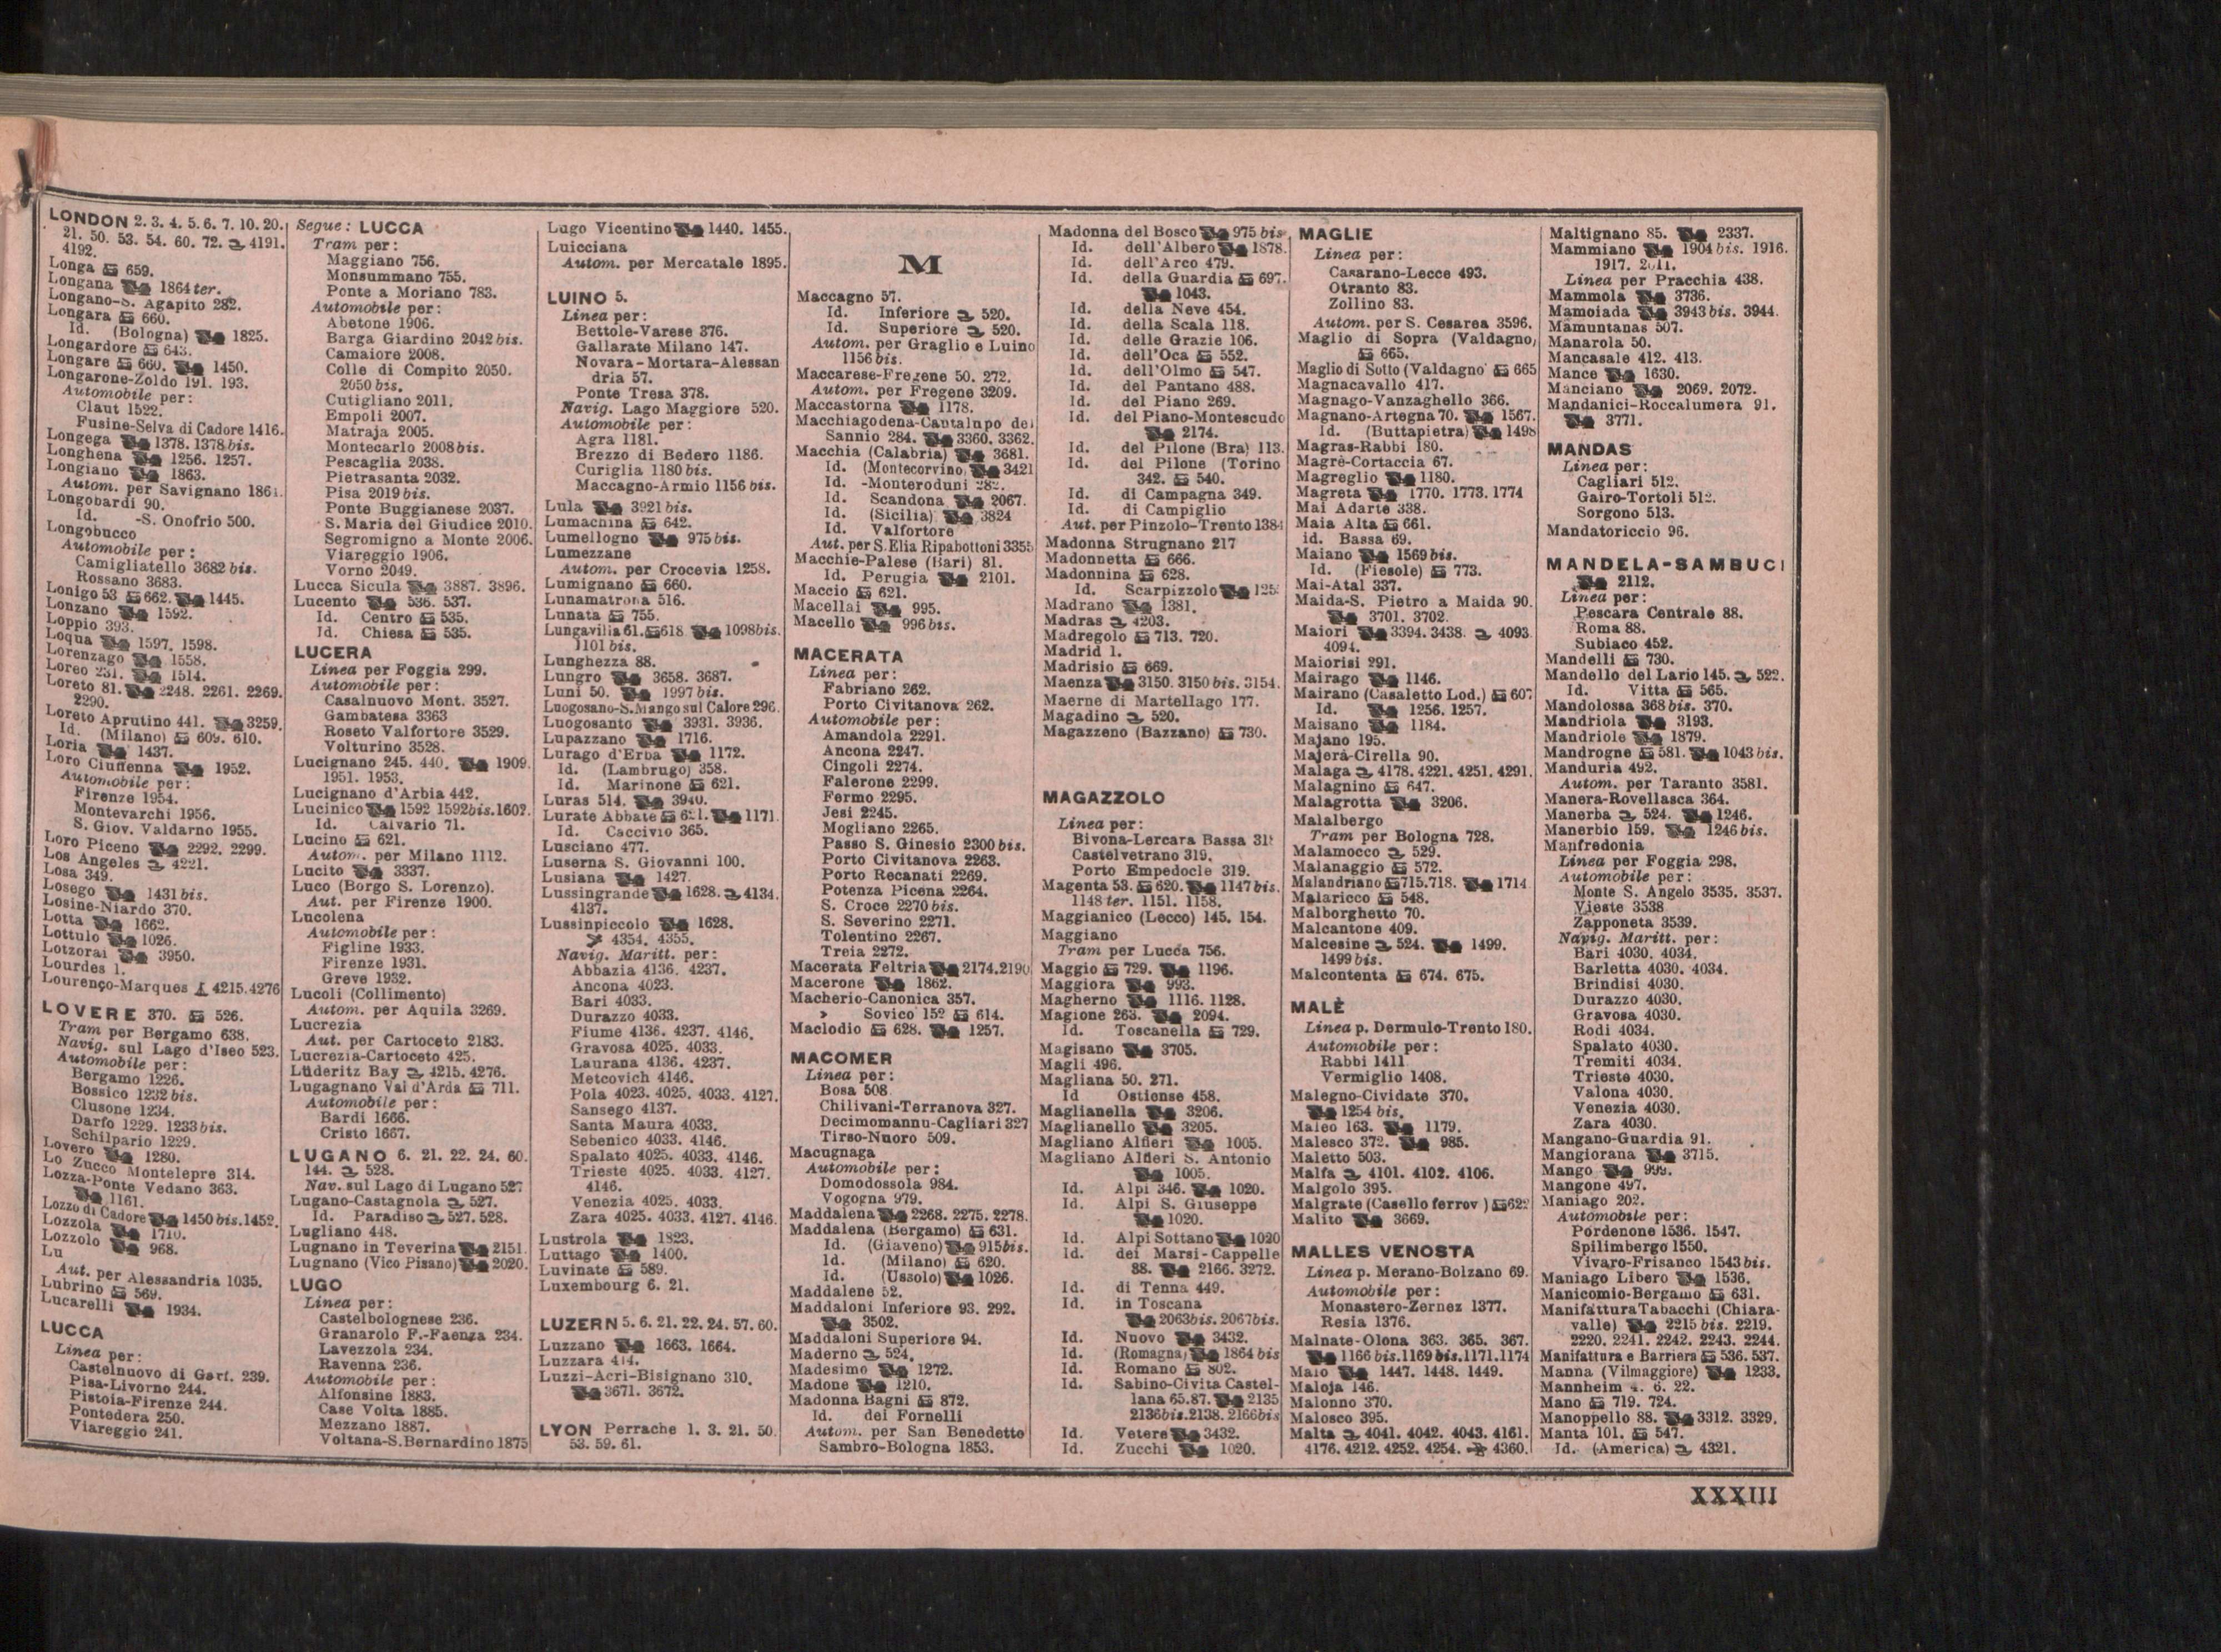 LONDON 2. 3. 4. 5. 6. 7. 10. 20.
21. 50. 53. 54. 60. 72. 4191.
4192.
Longa 659.
Longana 1864 ter.
Longano-S. Agapito 282.
Longara 660.
Id. (Bologna) 1825.
Longardore 643.
Longare 660. 1450.
Longarone-Zoldo 191. 193.
Automobile per:
Claut 1522.
Fusine-Selva di Cadore 1416.
Longega 1378. 1378 bis.
Longhena 1256. 1257.
Longiano 1863.
Autom. per Savignano
Longobardi 90.
Id. -S. Onofrio 500.
Longobucco
Automobile per:
Camigliatello 3682 bis.
Rossano 3683.
Lonigo 53 662. 1445.
Lonzano 1592.
Loppio 393.
Loqua 1597. 1598.
Lorenzago 1558.
Loreo 231. 1514.
Loreto 81. 2248. 2261. 2269.
2290.
Loreto Aprutino 441. 3259.
Id. (Milano) 609. 610.
Loria 1437.
Loro Ciuffenna 1952.
Automobile per:
Firenze 1954.
Montevarchi 1956.
S. Giov. Valdarno 1955.
Loro Piceno 2292. 2299.
Los Angeles 4221.
Losa 349.
Losego 1431 bis.
Losine-Niardo 370.
Lotta 1662.
Lottulo 1026.
Lotzorai 3950.
Lourdes 1.
Lourenço-Marques 4215. 4276
LOVERE 370. 526.
Tram per Bergamo 638.
Navig. sul Lago d'Iseo 523.
Automobile per:
Bergamo 1226.
Bossico 1232 bis.
Clusone 1234.
Darfo 1229. 1233 bis.
Schilpario 1229.
Lovero 1280.
Lo Zucco Montelepre 314.
Lozza-Ponte Vedano 363.
1161.
Lozzo di Cadore 1450 bis. 1452.
Lozzola 1710.
Lozzolo 968.
Lu
Aut. per Alessandria 1035.
Lubrino 569.
Lucarelli 1934.
LUCCA
Linea per:
Castelnuovo di Garf. 239.
Pisa-Livorno 244.
Pistoia-Firenze 244.
Pontedera 250.
Viareggio 241.
Segue: LUCCA
Tram per:
Maggiano 756.
Monsummano 755.
Ponte a Moriano 783.
Automobile per:
Abetone 1906.
Barga Giardino 2042 bis.
Camaiore 2008.
Colle di Compito 2050.
2050 bis.
Cutigliano 2011.
Empoli 2007.
Matraja 2005.
Montecarlo 2008 bis.
Pescaglia 2038.
Pietrasanta 2032.
Pisa 2019 bis.
Ponte Buggianese 2037.
S. Maria del Giudice 2010.
Segromigno a Monte 2006.
Viareggio 1906.
Vorno 2049.
Lucca Sicula 3887. 3896.
Lucento 536. 537.
Id. Centro 535.
Id. Chiesa 535.
LUCERA
Linea per Foggia 299.
Automobile per:
Casalnuovo Mont. 3527.
Gambatesa 3363
Roseto Valfortore 3529.
Volturino 3528.
Lucignano 245. 440. 1909.
1951. 1953.
Lucignano d'Arbia 442.
Lucinico 1592 1592bis. 1602.
Id. Calvario 71.
Lucino 621.
Autom. per Milano 1112.
Lucito 3337.
Luco (Borgo S. Lorenzo).
Aut. per Firenze 1900.
Lucolena
Automobile per:
Figline 1933.
Firenze 1931.
Greve 1932.
Lucoli (Collimento)
Autom. per Aquila 3269.
Lucrezia
Aut. per Cartoceto 2183.
Lucrezia-Cartoceto 425.
Lüderitz Bay 4215. 4276.
Lugagnano Val d'Arda 711.
Automobile per:
Bardi 1666.
Cristo 1667.
LUGANO 6. 21. 22. 24. 60.
144. 528.
Nav. sul Lago di Lugano 527
Lugano-Castagnola 527.
Id. Paradiso 527. 528.
Lugliano 448.
Lugnano in Teverina 2151.
Lugnano (Vico Pisano) 2020.
LUGO
Linea per:
Castelbolognese 236.
Granarolo F.-Faenza 234.
Lavezzola 234.
Ravenna 236.
Automobile per:
Alfonsine 1883.
Case Volta 1885.
Mezzano 1887.
Voltana-S. Bernardino 1875
Lugo Vicentino 1440. 1455.
Luicciana
Autom. per Mercatale 1895.
LUINO 5.
Linea per:
Bettole-Varese 376.
Gallarate Milano 147.
Novara-Mortara-Alessan
dria 57.
Ponte Tresa 378.
Navig. Lago Maggiore 520.
Automobile per:
Agra 1181.
Brezzo di Bedero 1186.
Curiglia 1180 bis.
Maccagno-Armio 1156 bis.
Lula 3921 bis.
Lumachina 642.
Lumellogno 975 bis.
Lumezzane
Autom. per Crocevia 1258.
Lumignano 660.
Lunamatrona 516.
Lunata 755.
Lungavilla 61. 618 1098bis.
1101 bis.
Lunghezza 88.
Lungro 3658. 3687.
Luni 50. 1997 bis.
Luogosano-S. Mango sul Calore 296.
Luogosanto 3931. 3936.
Lupazzano 1716.
Lurago d'Erba 1172.
Id. (Lambrugo) 358.
Id. Marinone 621.
Luras 514. 3940.
Lurate Abbate 621. 1171.
Id. Caccivio 365.
Lusciano 477.
Luserna S. Giovanni 100.
Lusiana 1427.
Lussingrande 1628. 4134.
4137.
Lussinpiccolo 1628.
4354. 4355.
Navig. Maritt. per:
Abbazia 4136. 4237.
Ancona 4023.
Bari 4033.
Durazzo 4033.
Fiume 4136. 4237. 4146.
Gravosa 4025. 4033.
Laurana 4136. 4237.
Metcovich 4146.
Pola 4023. 4025. 4033. 4127.
Sansego 4137.
Santa Maura 4033.
Sebenico 4033. 4146.
Spalato 4025. 4033. 4146.
Trieste 4025. 4033. 4127.
4146.
Venezia 4025. 4033.
Zara 4025. 4033. 4127. 4146.
Lustrola 1823.
Luttago 1400.
Luvinate 589.
Luxembourg 6. 21.
LUZERN 5. 6. 21. 22. 24. 57. 60.
Luzzano 1663. 1664.
Luzzara 414.
Luzzi-Acri-Bisignano 310.
3671. 3672.
LYON Perrache 1. 3. 21. 50.
53. 59. 61.
M
Maccagno 57.
Id. Inferiore 520.
Id. Superiore 520.
Autom. per Graglio e Luino
1156 bis.
Maccarese-Fregene 50. 272.
Autom. per Fregene 3209.
Maccastorna 1178.
Macchiagodena-Cantalupo del
Sannio 284. 3360. 3362.
Macchia (Calabria) 3681.
Id. (Montecorvino) 3421
Id. -Monteroduni 282.
Id. Scandona 2067.
Id. (Sicilia) 3824
Id. Valfortore
Aut. per S. Elia Ripabottoni 3355
Macchie-Palese (Bari) 81.
Id. Perugia 2101.
Maccio 621.
Macellai 995.
Macello 996 bis.
MACERATA
Linea per:
Fabriano 262.
Porto Civitanova 262.
Automobile per:
Amandola 2291.
Ancona 2247.
Cingoli 2274.
Falerone 2299.
Fermo 2295.
Jesi 2245.
Mogliano 2265.
Passo S. Ginesio 2300 bis.
Porto Civitanova 2263.
Porto Recanati 2269.
Potenza Picena 2264.
S. Croce 2270 bis.
S. Severino 2271.
Tolentino 2267.
Treia 2272.
Macerata Feltria 2174. 2190
Macerone 1862.
Macherio-Canonica 357.
» Sovico 152 614.
Maclodio 628. 1257.
MACOMER
Linea per:
Bosa 508
Chilivani-Terranova 327.
Decimomannu-Cagliari 327
Tirso-Nuoro 509.
Macugnaga
Automobile per:
Domodossola 984.
Vogogna 979.
Maddalena 2268. 2275. 2278.
Maddalena (Bergamo) 631.
Id. (Giaveno) 915bis.
Id. (Milano) 620.
Id. (Ussolo) 1026.
Maddalene 52.
Maddaloni Inferiore 93. 292.
3502.
Maddaloni Superiore 94.
Maderno 524.
Madesimo 1272.
Madone 1210.
Madonna Bagni 872.
Id. dei Fornelli
Autom. per San Benedetto
Sambro-Bologna 1853.
Madonna del Bosco 975 bis
Id. dell'Albero 1878.
Id. dell'Arco 479.
Id. della Guardia 697.
1043.
Id. della Neve 454.
Id. della Scala 118.
Id. delle Grazie 106.
Id. dell'Oca 552.
Id. dell'Olmo 547.
Id. del Pantano 488.
Id. del Piano 269.
Id. del Piano-Montescudo
2174.
Id. del Pilone (Bra) 113.
Id. del Pilone (Torino
342. 540.
Id. di Campagna 349.
Id. di Campiglio
Aut. per Pinzolo-Trento 1384
Madonna Strugnano 217
Madonnetta 666.
Madonnina 628.
Id. Scarpizzolo
Madrano 1381.
Madras 4203.
Madregolo 713. 720.
Madrid 1.
Madrisio 669.
Maenza 3150. 3150 bis. 3154.
Maerne di Martellago 177.
Magadino 520.
Magazzeno (Bazzano) 730.
MAGAZZOLO
Linea per:
Bivona-Lercara Bassa
Castelvetrano 319.
Porto Empedocle 319.
Magenta 53. 620. 1147 bis.
1148 ter. 1151. 1158.
Maggianico (Lecco) 145. 154.
Maggiano
Tram per Lucca 756.
Maggio 729. 1196.
Maggiora 993.
Magherno 1116. 1128.
Magione 263. 2094.
Id. Toscanella 729.
Magisano 3705.
Magli 496.
Magliana 50. 271.
Id Ostiense 458.
Maglianella 3206.
Maglianello 3205.
Magliano Alfieri 1005.
Magliano Alfieri S. Antonio
1005.
Id. Alpi 346. 1020.
Id. Alpi S. Giuseppe
1020.
Id. Alpi Sottano 1020
Id. dei Marsi-Cappelle
88. 2166. 3272.
Id. di Tenna 449.
Id. in Toscana
2063bis. 2067bis.
Id. Nuovo 3432.
Id. (Romagna) 1864 bis
Id. Romano 802.
Id. Sabino-Civita Castel-
lana 65. 87. 2135
2136bis. 2138. 2166bis
Id. Vetere 3432.
Id. Zucchi 1020.
MAGLIE
Linea per:
Casarano-Lecce 493.
Otranto 83.
Zollino 83.
Autom. per S. Cesarea 3596.
Maglio di Sopra (Valdagno)
665.
Maglio di Sotto (Valdagno 665
Magnacavallo 417.
Magnago-Vanzaghello 366.
Magnano-Artegna 70. 1567.
Id. (Buttapietra) 1498
Magras-Rabbi 180.
Magrè-Cortaccia 67.
Magreglio 1180.
Magreta 1770. 1773. 1774
Mai Adarte 338.
Maia Alta 661.
id. Bassa 69.
Maiano 1569 bis.
Id. (Fiesole) 773.
Mai-Atal 337.
Maida-S. Pietro a Maida 90.
3701. 3702.
Maiori 3394. 3438. 4093
4094.
Maiorisi 291.
Mairago 1146.
Mairano (Casaletto Lod.) 607
Id. 1256. 1257.
Maisano 1184.
Majano 195.
Majerà-Cirella 90.
Malaga 4178. 4221. 4251. 4291.
Malagnino 647.
Malagrotta 3206.
Malalbergo
Tram per Bologna 728.
Malamocco 529.
Malanaggio 572.
Malandriano 715. 718. 1714
Malaricco 548.
Malborghetto 70.
Malcantone 409.
Malcesine 524. 1499.
1499 bis.
Malcontenta 674. 675.
MALÈ
Linea p. Dermulo-Trento 180.
Automobile per:
Rabbi 1411
Vermiglio 1408.
Malegno-Cividate 370.
1254 bis.
Maleo 163. 1179.
Malesco 372. 985.
Maletto 503.
Malfa 4101. 4102. 4106.
Malgolo 395.
Malgrate (Casello ferrov) 622
Malito 3669.
MALLES VENOSTA
Linea p. Merano-Bolzano 69.
Automobile per:
Monastero-Zernez 1377.
Resia 1376.
Malnate-Olona 363. 365. 367.
1166 bis. 1169 bis. 1171. 1174
Malo 1447. 1448. 1449.
Maloja 146.
Malonno 370.
Malosco 395.
Malta 4041. 4042. 4043. 4161.
4176. 4212. 4252. 4254. 4360.
Maltignano 85. 2337.
Mammiano 1904 bis. 1916.
1917. 2011.
Linea per Pracchia 438.
Mammola 3736.
Mamoiada 3943 bis. 3944.
Mamuntanas 507.
Manarola 50.
Mancasale 412. 413.
Mance 1630.
Manciano 2069. 2072.
Mandanici-Roccalumera 91.
3771.
MANDAS
Linea per:
Cagliari 512.
Gairo-Tortoli 512.
Sorgono 513.
Mandatoriccio 96.
MANDELA-SAMBUCI
2112.
Linea per:
Pescara Centrale 88.
Roma 88.
Subiaco 452.
Mandelli 730.
Mandello del Lario 145. 522.
Id. Vitta 565.
Mandolossa 368 bis. 370.
Mandriola 3193.
Mandriole 1879.
Mandrogne 581. 1043 bis.
Manduria 492.
Autom. per Taranto 3581.
Manera-Rovellasca 364.
Manerba 524. 1246.
Manerbio 159. 1246 bis.
Manfredonia
Linea per Foggia 298.
Automobile per:
Monte S. Angelo 3535. 3537.
Vieste 3538
Zapponeta 3539.
Navig. Maritt. per:
Bari 4030. 4034.
Barletta 4030. 4034.
Brindisi 4030.
Durazzo 4030.
Gravosa 4030.
Rodi 4034.
Spalato 4030.
Tremiti 4034.
Trieste 4030.
Valona 4030.
Venezia 4030.
Zara 4030.
Mangano-Guardia 91.
Mangiorana 3715.
Mango 999.
Mangone 497.
Maniago 202.
Automobile per:
Pordenone 1536. 1547.
Spilimbergo 1550.
Vivaro-Frisanco 1543 bis.
Maniago Libero 1536.
Manicomio-Bergamo 631.
Manifattura Tabacchi (Chiara-
valle) 2215 bis. 2219.
2220. 2241. 2242. 2243. 2244.
Manifattura e Barriera 536. 537.
Manna (Vilmaggiore) 1233.
Mannheim 4. 6. 22.
Mano 719. 724.
Manoppello 88. 3312. 3329.
Manta 101. 547.
Id. (America) 4321.
XXXIII